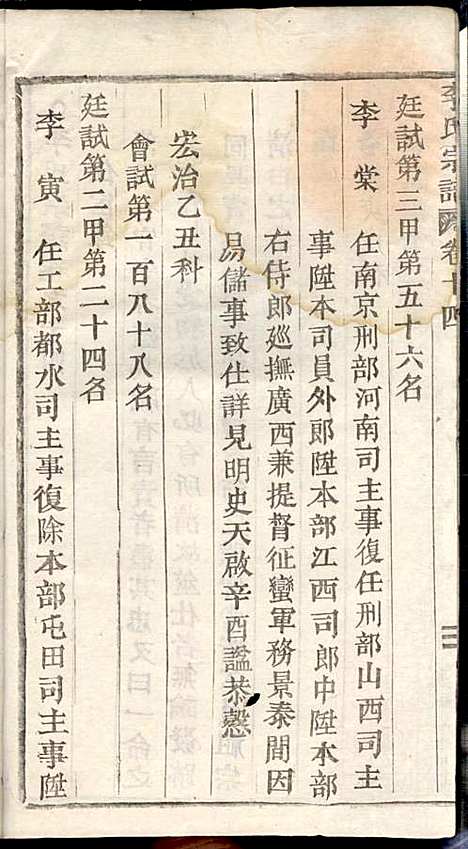 李氏宗譜 卷十四
廷試第三甲第五十六名
李棠 任南京刑部河南司主事復任刑部山西司主
事陞本司員外郎陞本部江西司郎中陞本部
右侍郎廵撫廣西兼提督征蠻軍務景泰間因
易儲事致仕詳見明史天啟辛酉謚恭慤
宏治乙丑科
會試第一百八十八名
廷試第二甲第二十四名
李寅 任工部都水司主事復除本部屯田司主事陞